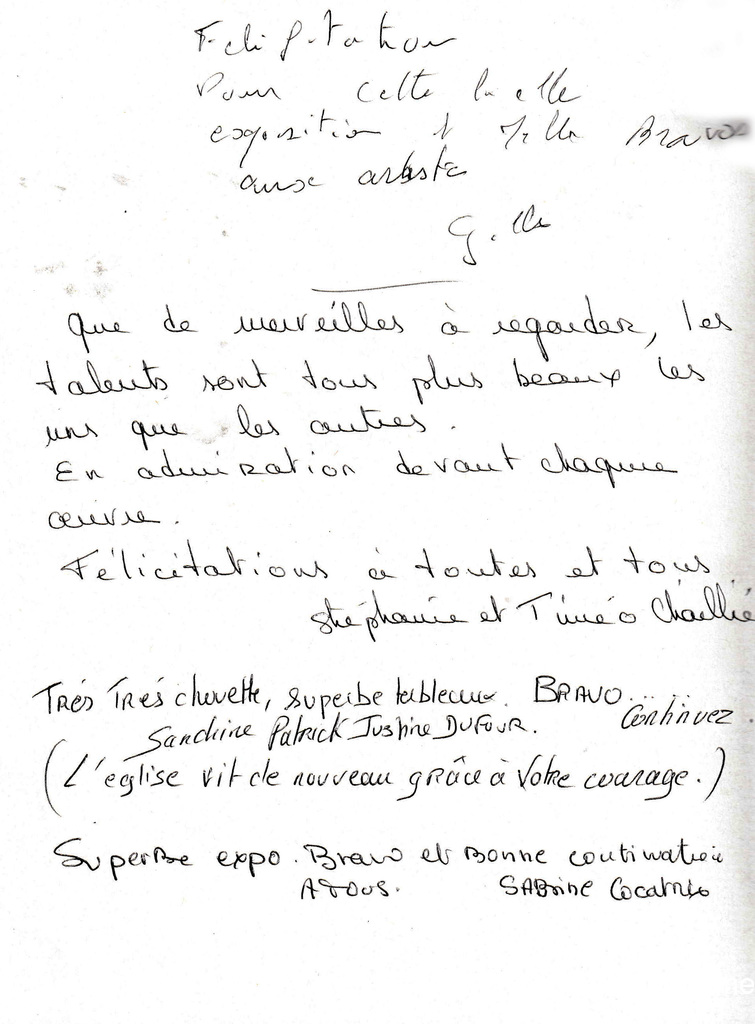 Felicitation
Pour cette belle
exposition et Bravos
aux artiste
Que de merveilles à regarder, les
talents sont tous plus beaux les
uns que les autres.
En admiration devant chaque
œuvre.
Félicitations à toutes et tous
Stéphanie et Timéo
TRÉS TRÉS chouette, superbe tableaux. BRAVO......
Continuez.
Sandrine Patrick Justine DUFOUR.
(L'église vit de nouveau grâce à votre courage.)
Superbe expo. Bravo et Bonne continuation
A TOUS. SABrine